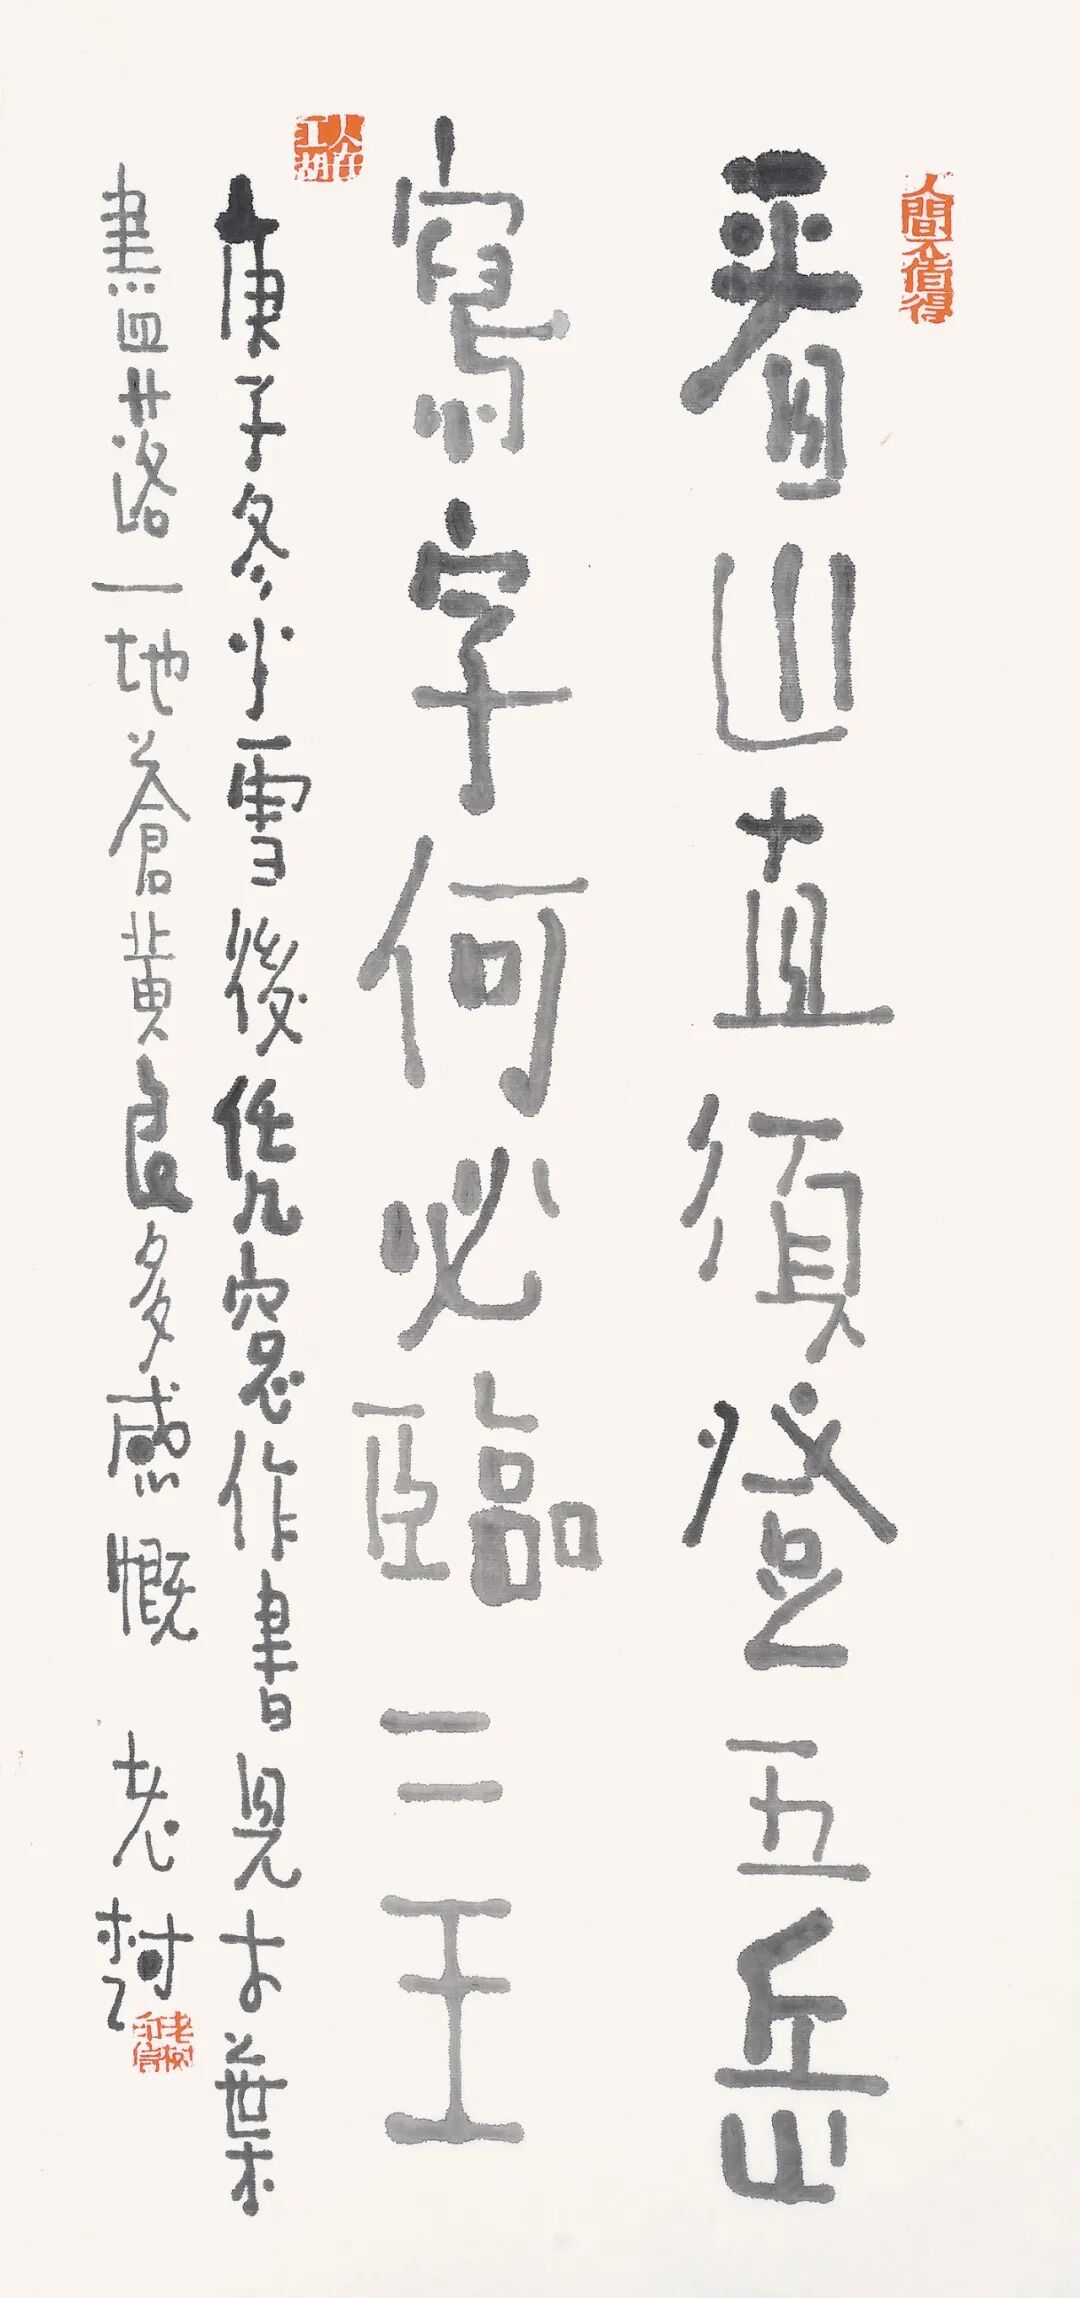 人間不值得
看山直須登五岳
寫字何必臨二王
人在江湖
庚子冬小雪後凭窗作書見木葉
盡落一地蒼黃良多感慨 老樹
老树印信